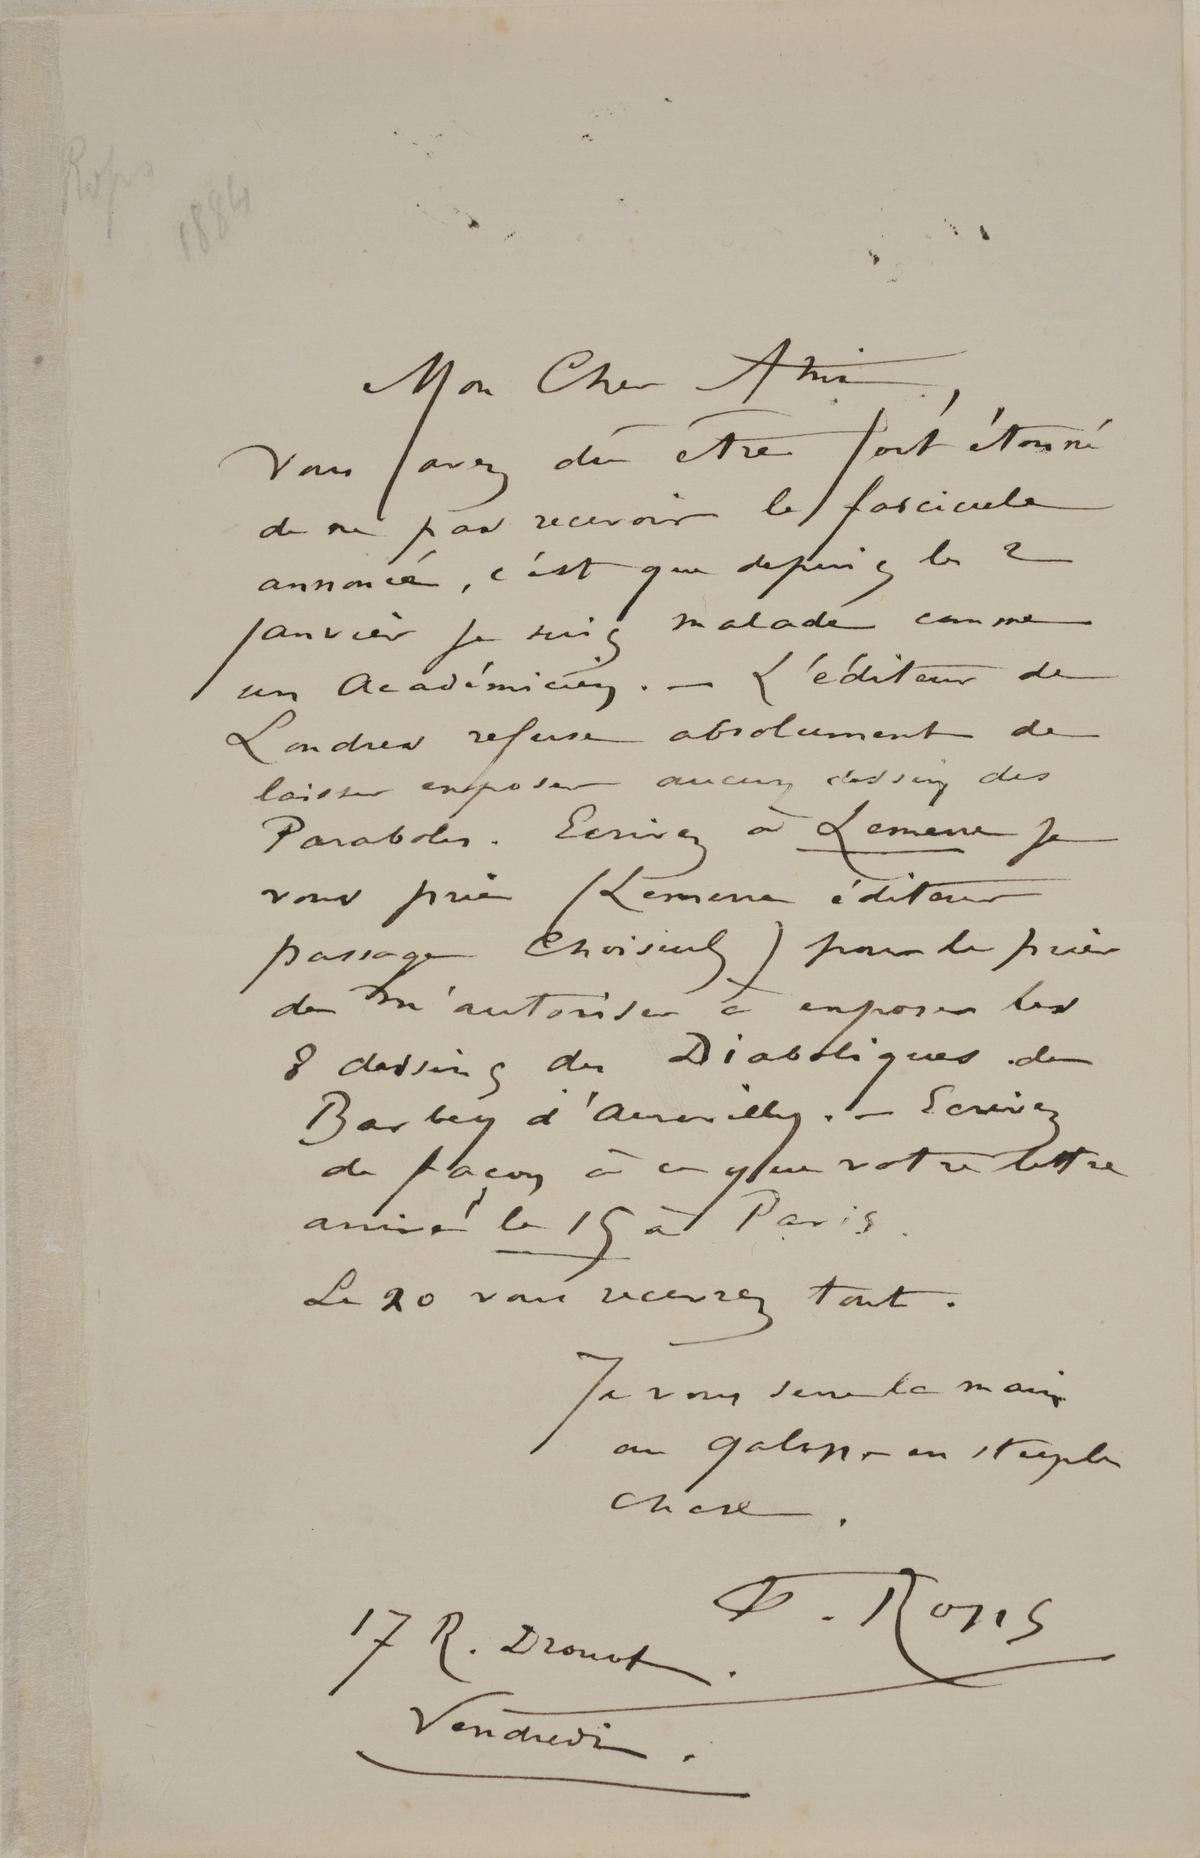 Rops
1884
Mon Cher Ami,
Vous avez dû être fort étonné
de ne pas recevoir le fascicule
annoncé, c'est que depuis le 2
janvier je suis malade comme
un Académicien. — L'éditeur de
Londres refuse absolument de
laisser exposer aucun dessin des
Paraboles. Ecrivez à Lemerre je
vous prie (Lemerre éditeur
passage Choiseul) pour le prier
de m'autoriser à exposer les
8 dessins des Diaboliques de
Barbey d'Aurevilly. — Ecrivez
de façon à ce que votre lettre
arrive le 15 à Paris.
Le 20 vous recevrez tout.
Je vous serre la main
au galop – en steeple
chase.
F. Rops
17 R. Drouot.
Vendredi.